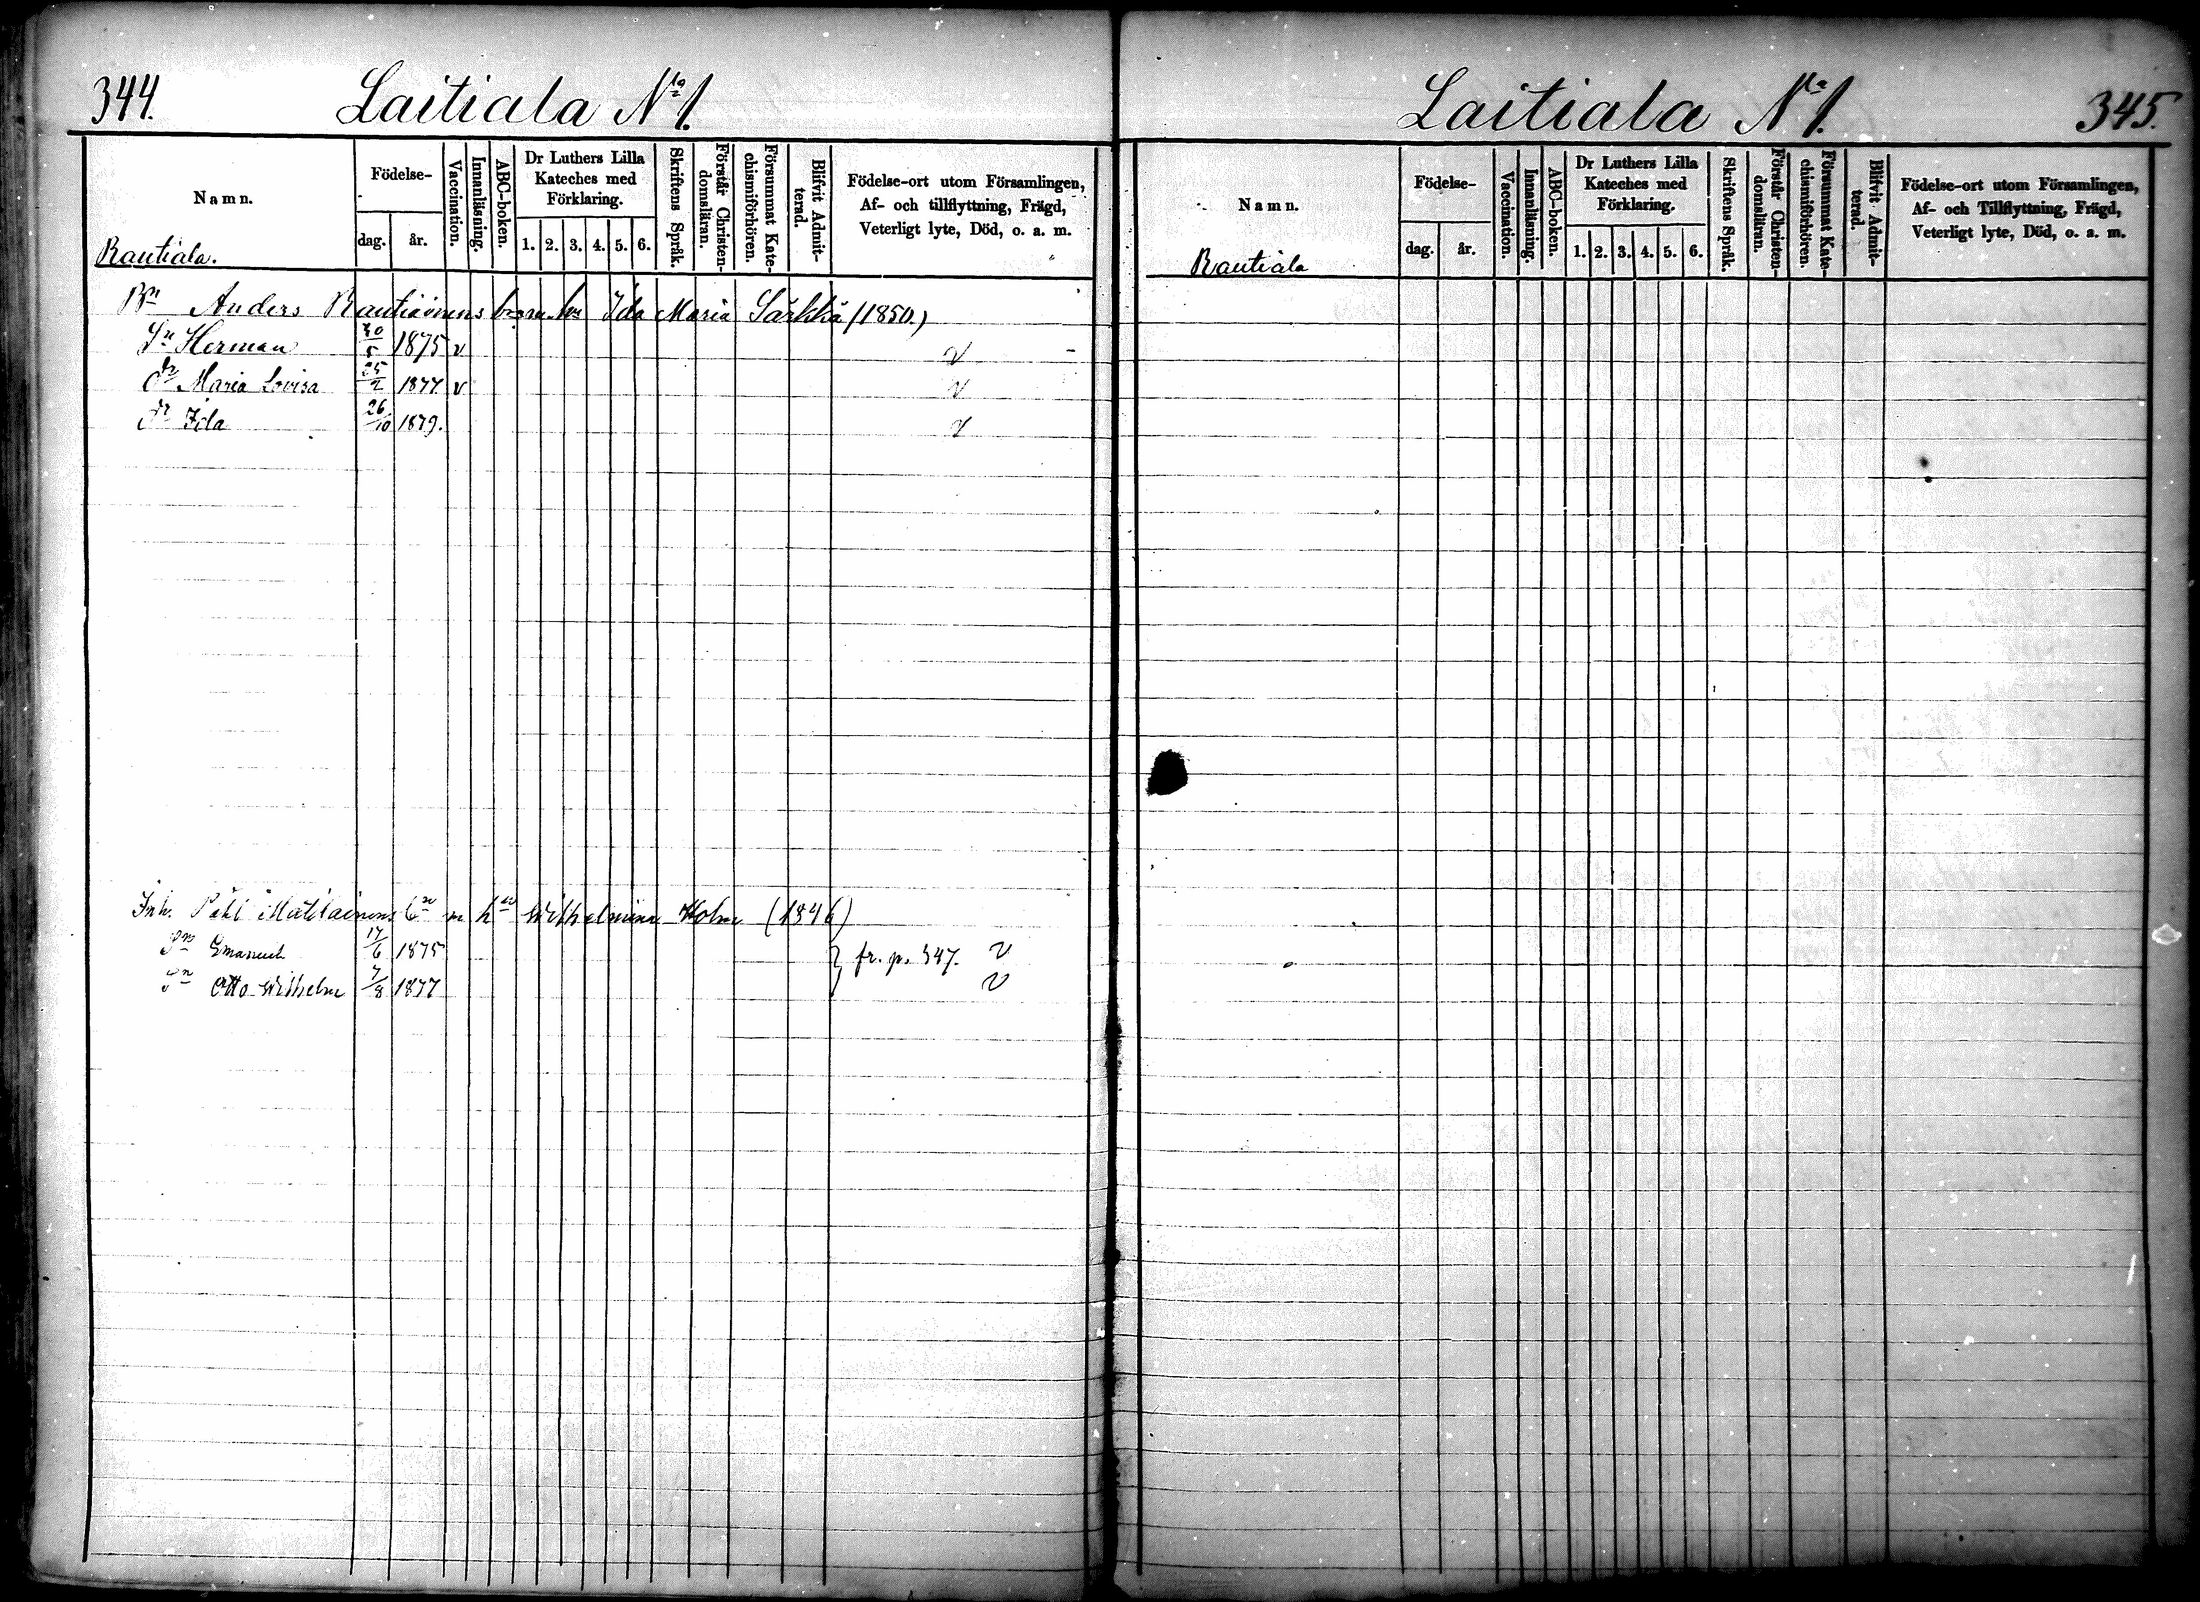 344. Laitiala No 1.
Namn. Födelse- dag. år. Vaccination. Innanläsning. ABC-boken. Dr Luthers Lilla Kateches med Förklaring. 1. 2. 3. 4. 5. 6. Skriftens Språk. Förstår Christendomsläran. Försummat Katechismiförhören. Blifvit Admitterad. Födelse-ort utom Församlingen, Af- och tillflyttning, Frägd, Veterligt lyte, Död, o. a. m.
Rautiala.
Bn Anders Rautiainens barn Ida Maria Särkkä (1850.)
Sn Herman 30/5 1875 v v
dr Maria Lovisa 25/2 1877 v v
dr Ida 26/10 1879. v
Inh. Påhl Matilainens m h Wilhelmina Holm (1846)
Sn Emanuel 17/6 1875 } fr. p. 347. v
Sn Otto Wilhelm 7/8 1877 v
Laitiala No 1. 345.
Namn. Födelse- dag. år. Vaccination. Innanläsning. ABC-boken. Dr Luthers Lilla Kateches med Förklaring. 1. 2. 3. 4. 5. 6. Skriftens Språk. Förstår Christendomsläran. Försummat Katechismiförhören. Blifvit Admitterad. Födelse-ort utom Församlingen, Af- och Tillflyttning, Frägd, Veterligt lyte, Död, o. a. m.
Rautiala